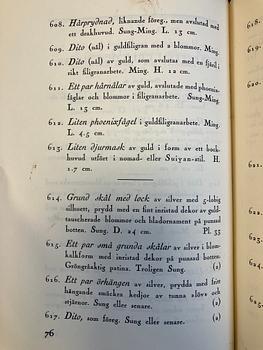 608. Hårprydnad, liknande föreg., men avslutad med
ett drakhuvud. Sung-Ming. L. 13 cm.
609. Dito (nål) i guldfiligran med a blommor. Ming.
610. Dito (nål) av guld, som avslutas med en fjäril i
rikt filigranarbete. Ming. H. 12 cm.
611. Ett par hårnålar av guld, avslutade med phoenix-
fåglar och blommor i filigranarbete. Sung-Ming.
L. 15 cm.
612. Liten phoenixfågel i guldfiligranarbete. Ming.
L. 4.5 cm.
613. Liten djurmask av guld i form av ett bock-
huvud utfört i nomad- eller Suiyan-stil. H.
1.7 cm.
614. Grund skål med lock av silver med 5-lobig
silhuett, prydd med en fint inristad dekor av guld-
tauscherade blommor och bladornament på punsad
botten. Sung. D. 24 cm. Pl. 53
615. Ett par små grunda skålar av silver i blom-
kalkform med inristad dekor på punsad botten.
Gröngråaktig patina. Troligen Sung. (2)
616. Ett par örhängen av silver, prydda med fritt
hängande smäcken kedjor av tunna alöv och
stjärnor. Sung eller senare. (2)
617. Dito, som föreg. Sung eller senare. (2)
76